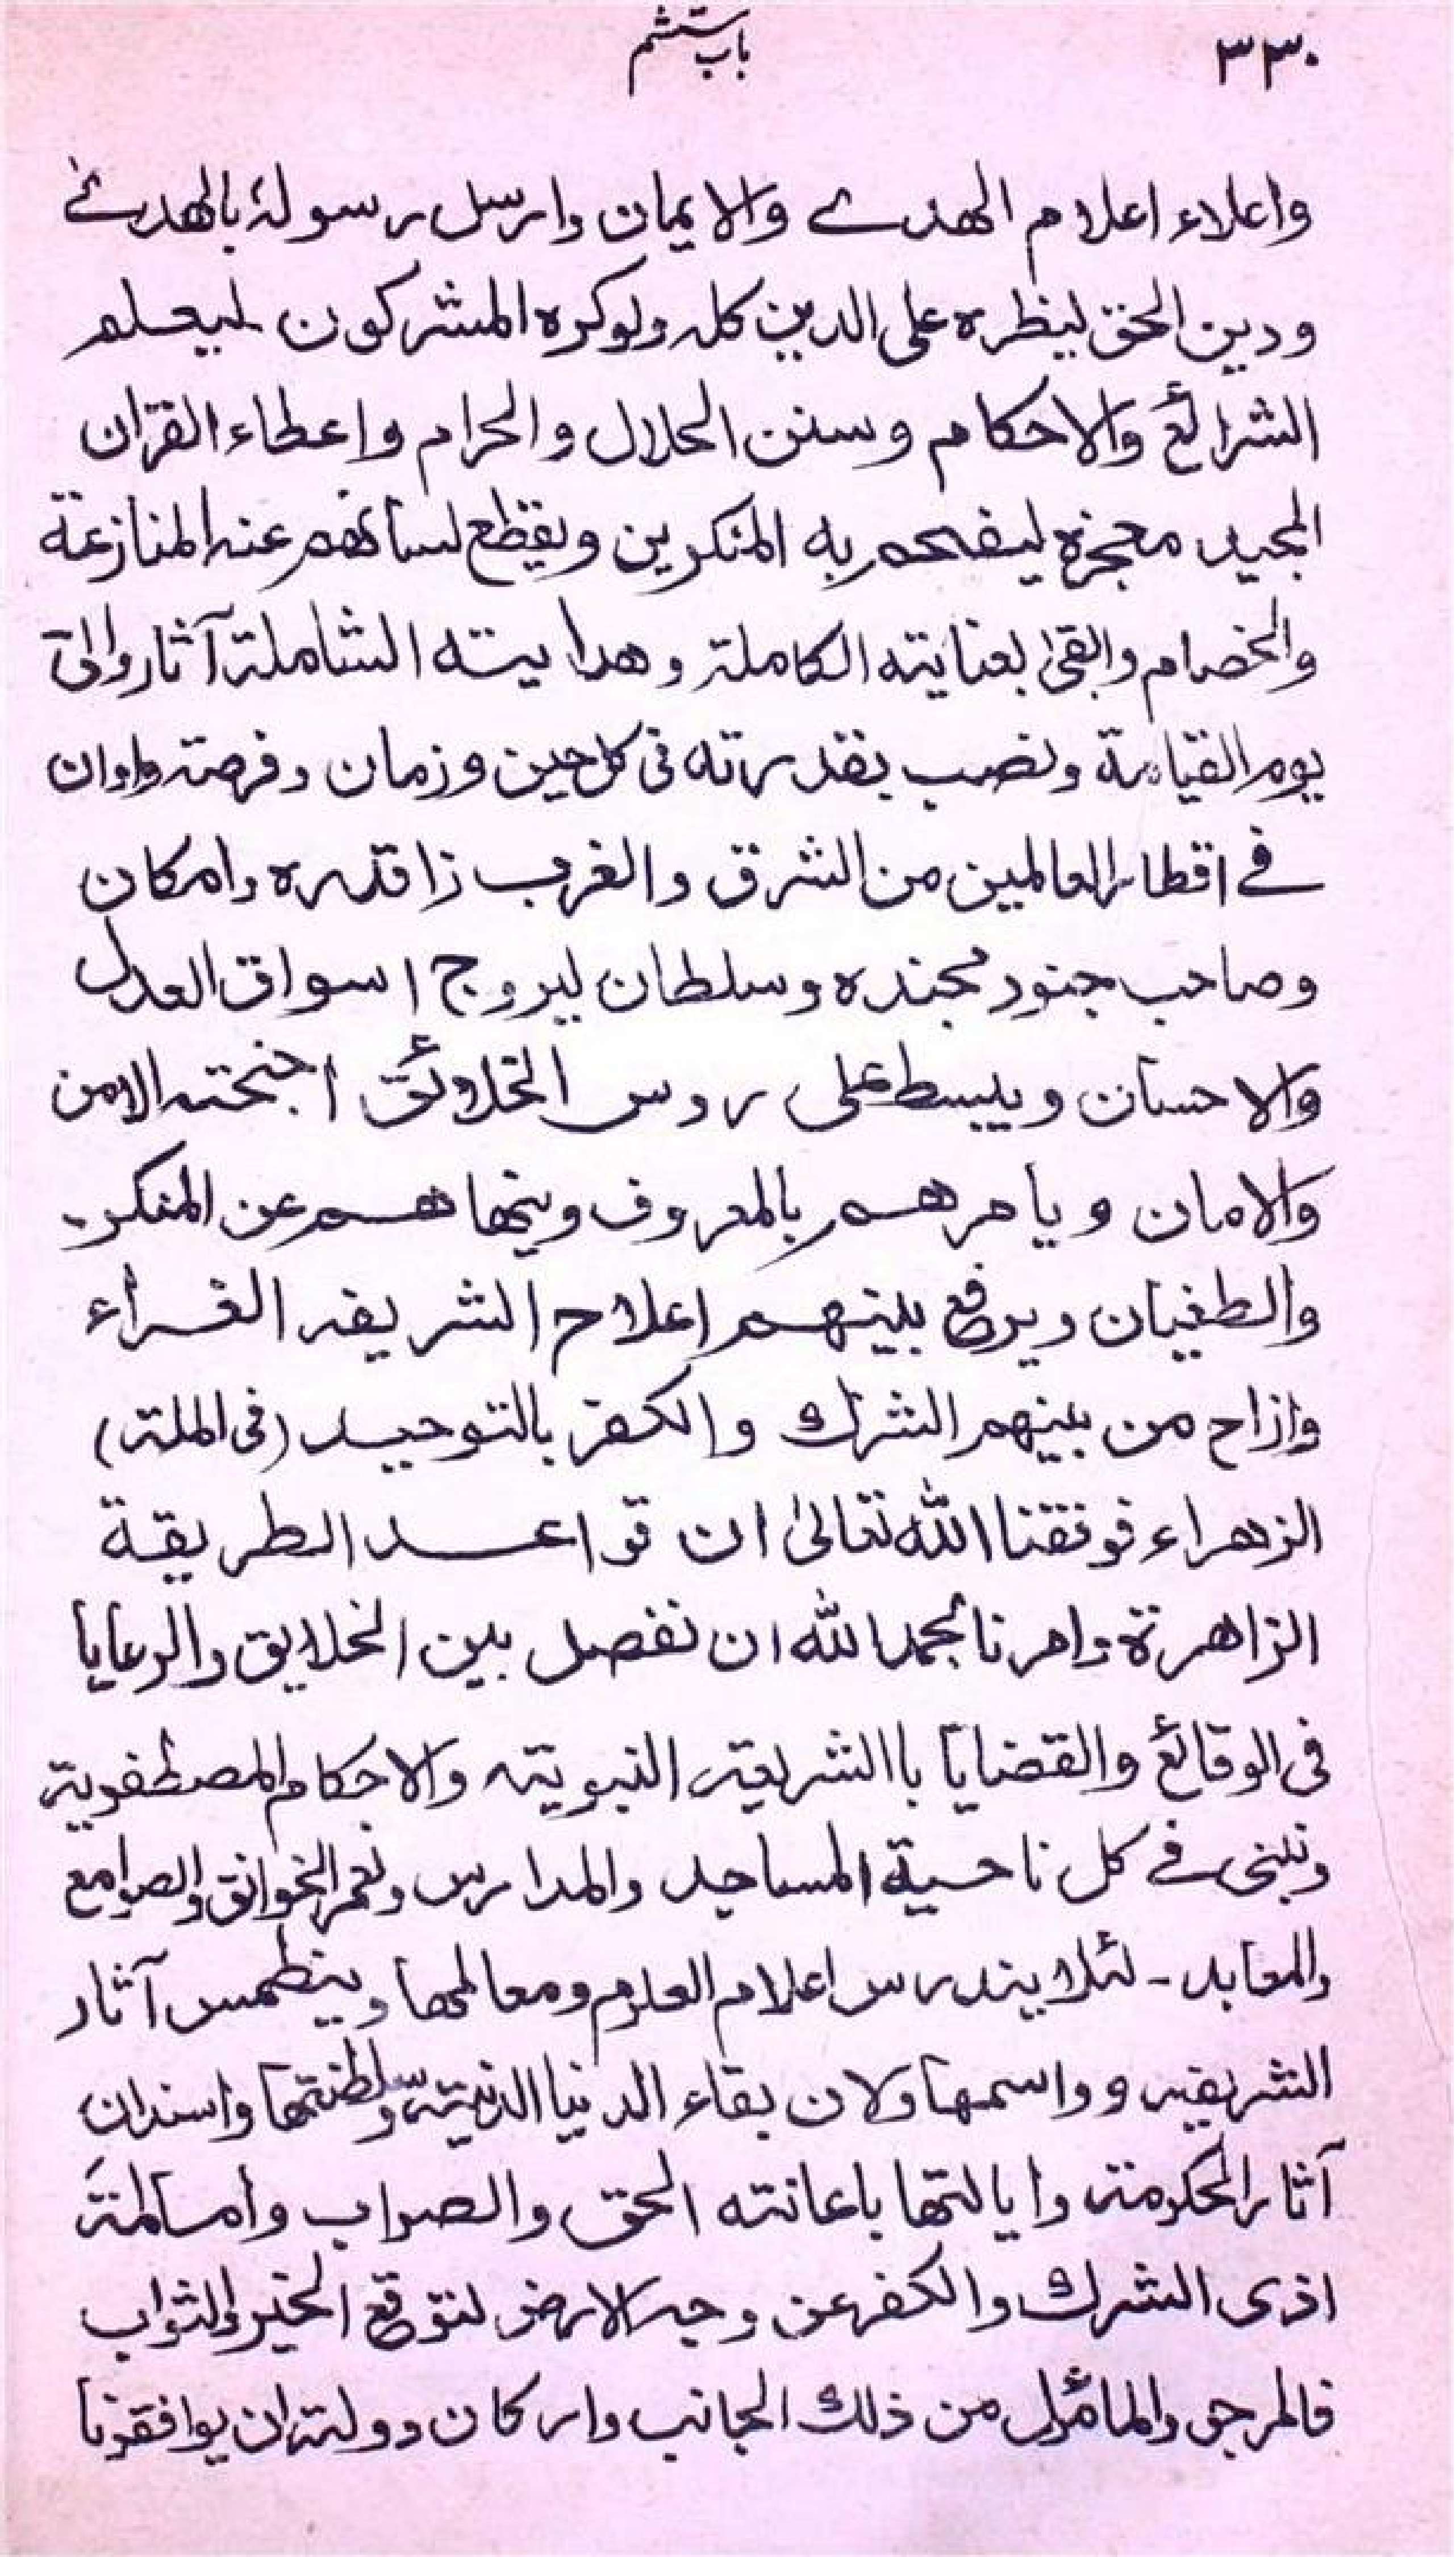 ٣٣٠ باب ششم
واعلاء اعلام الهدے والایمان وارسل رسولہٗ بالهدےٰ
ودین الحق لیظرہ علی الدین کلہ ولوکرہ المشرکون لیعلم
الشرائع والاحکام وسنن الحلال والحرام واعطاء القرآن
المجید معجزة لیفحم به المنکرین ویقطع لسانهم عنہ المنازعة
والخصام وابقیٰ بعنایته الکاملۃ وهدایته الشاملۃ آثارہ الیٰ
یوم القیامة ونصب بقدرته فی کل حین وزمان وفرصۃ واوان
فے اقطار العالمین من الشرق والغرب ذا قدرہ وامکان
وصاحب جنود مجندہ وسلطان لیروج اسواق العدل
والاحسان ویبسط علی روس الخلائق اجنحتہ الامن
والامان ویامرهم بالمعروف وینهاهم عن المنکر۔
والطغیان ویرفع بینهم اعلام الشریعہ الغراء
وازاح من بینهم الشرك والکفر بالتوحید (فی الملۃ)
الزهراء فوفقنا اللّٰه تعالیٰ ان قواعد الطریقة
الزاهرة وامرنا بحمد اللّٰه ان نفصل بین الخلایق والرعایا
فی الوقائع والقضایا باالشریعتہ النبویتہ والاحکام المصطفویۃ
ونبنی فے کل ناحیة المساجد والمدارس ونعمر الخوانق والصوامع
والمعابد۔ لئلا یندرس اعلام العلوم ومعالمها وینطمس آثار
الشریعہ وواسمها ولان بقاء الدنیا الدنیتہ وسلطنتها واسندان
آثار الحکومتہ وایالتها باعانته الحق والصواب وامالمتہَ
اذی الشرك والکفر عن وجہ الارض لنتوقع الخیر والثواب
فالمرجی والمامُول من ذلك الجانب وارکان دولتہ ان یوافقونا